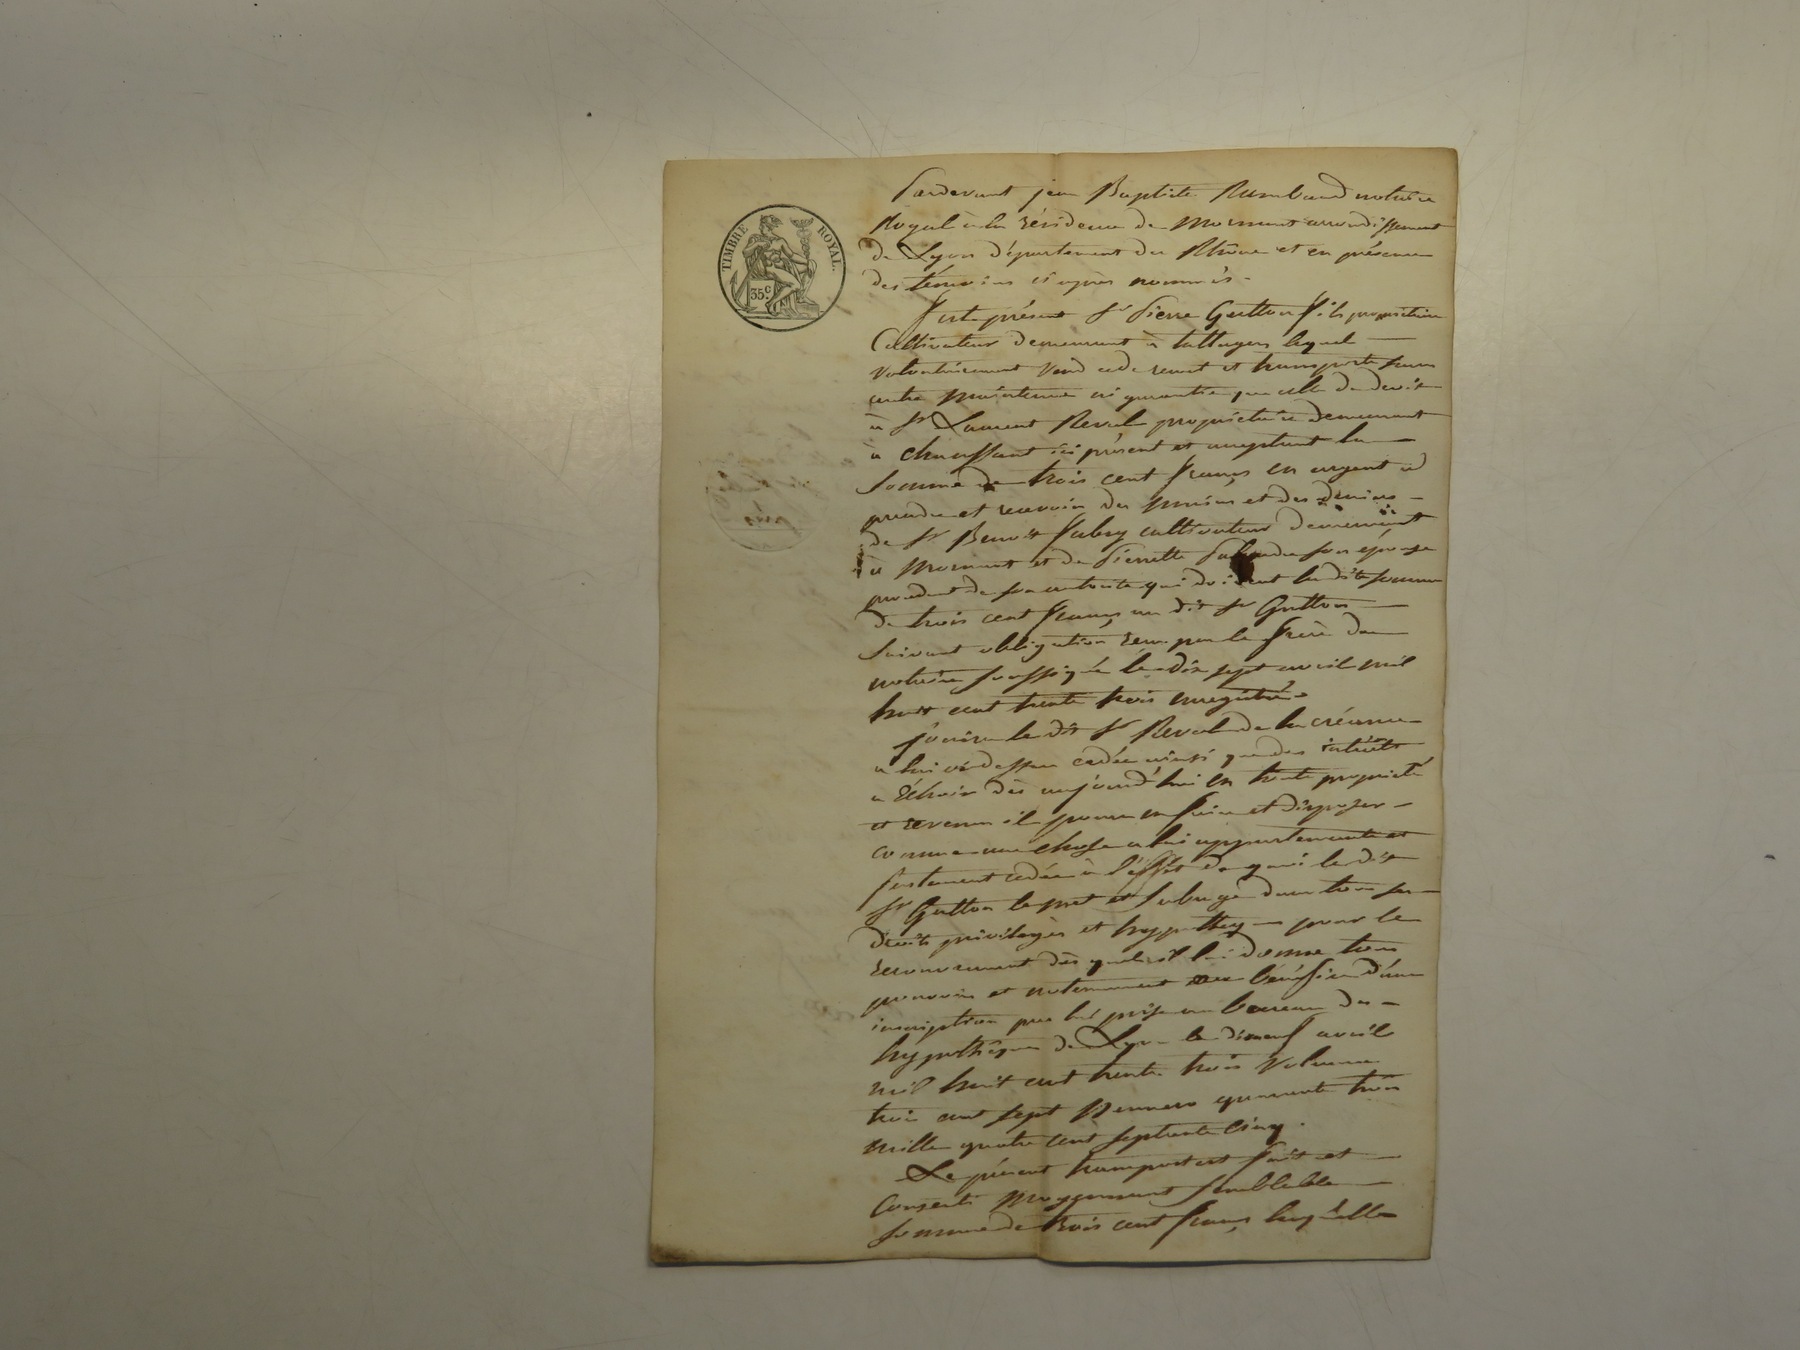 TIMBRE ROYAL.
35c.
Pardevant jean Baptiste Rambaud notaire
Royal à la résidence de Mornant arrondissement
de Lyon département du Rhône et en présence
des témoins ci après nommés.
fut présent Sr Pierre Gutton fils propriétaire
Cultivateur demeurant à talluyers lequel
volontairement vend cede remet et transporte sans
autre maintenue ni garantie que celle de droit
à Sr Laurent Reval propriétaire demeurant
à chaussant ici présent et acceptant la
Somme de trois cent francs en argent à
prendre et recevoir des mains et des deniers
de Sr Benoit fabry cultivateur demeurant
à Mornant et de Pierrette son épouse
procedant de son autorité qui doivent la dite somme
de trois cent francs au dit Sr Gutton
Suivant obligation reçue par le frère du
notaire soussigné le dix sept avril mil
huit cent trente trois enregistrée
jouira le dit Sr Reval de la créance
a lui ci dessus cedée ainsi que des intérêts
a Echoir dès aujourd'hui en toute propriété
et revenu il pourra en faire et disposer
comme une chose a lui appartenante et
justement cedée à l'effet de quoi le dit
Sr Gutton le met et subroge dans tous ses
droits privilèges et hypothèques pour le
recouvrement des quels il lui donne tous
pouvoirs et notamment au bénéfice d'une
inscription par lui prise au bureau des
hypothèques de Lyon le dixneuf avril
mil huit cent trente trois Volume
trois cent sept Numero quarante trois
mille quatre cent septante cinq.
Le présent transport est fait et
Consenti moyennant semblable
somme de trois cent francs laquelle